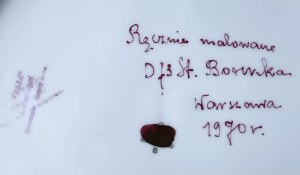 Ręcznie malowane
D/3 St. Borewska
Warszawa
1970 r.
8